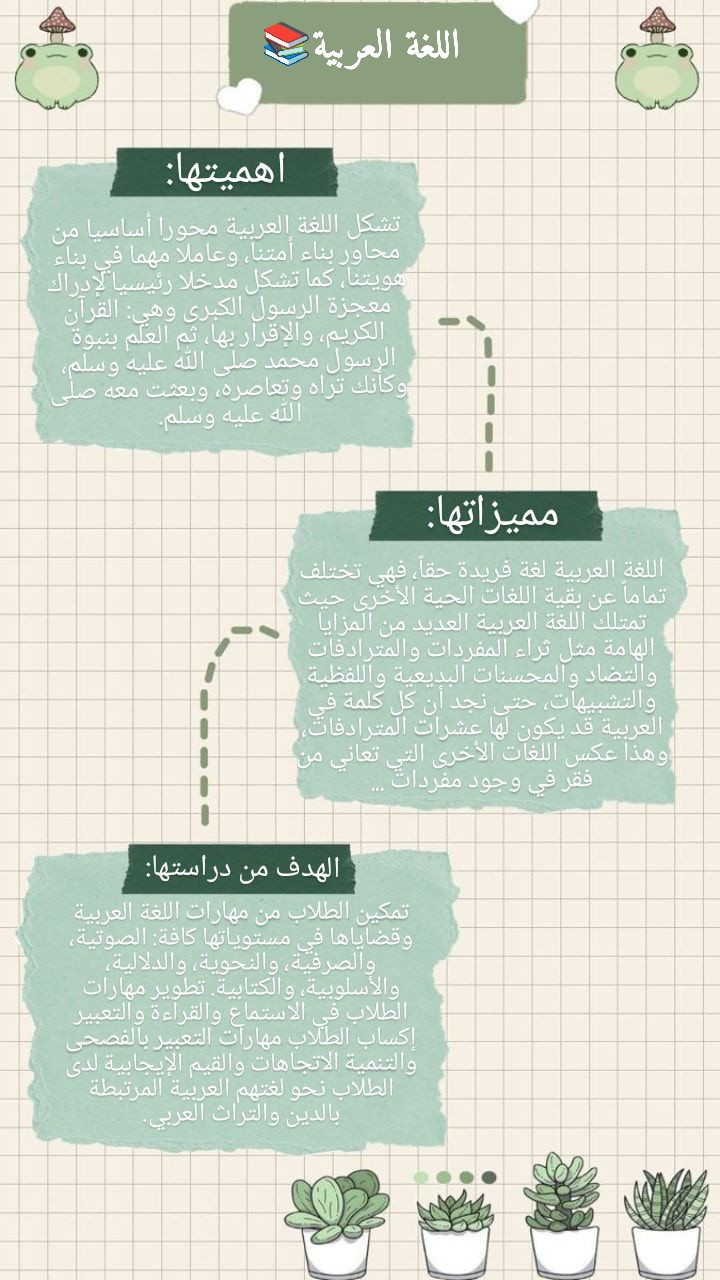 اللغة العربية📚
اهميتها:
تشكل اللغة العربية محورا أساسيا من
محاور بناء أمتنا، وعاملا مهما في بناء
هويتنا، كما تشكل مدخلا رئيسيا لإدراك
معجزة الرسول الكبرى وهي: القرآن
الكريم، والإقرار بها، ثم العلم بنبوة
الرسول محمد صلى الله عليه وسلم،
وكأنك تراه وتعاصره، وبعثت معه صلى
الله عليه وسلم.
مميزاتها:
اللغة العربية لغة فريدة حقاً، فهي تختلف
تماماً عن بقية اللغات الحية الأخرى حيث
تمتلك اللغة العربية العديد من المزايا
الهامة مثل ثراء المفردات والمترادفات
والتضاد والمحسنات البديعية واللفظية
والتشبيهات، حتى نجد أن كل كلمة في
العربية قد يكون لها عشرات المترادفات،
وهذا عكس اللغات الأخرى التي تعاني من
فقر في وجود مفردات ...
الهدف من دراستها:
تمكين الطلاب من مهارات اللغة العربية
وقضاياها في مستوياتها كافة: الصوتية،
والصرفية، والنحوية، والدلالية،
والأسلوبية، والكتابية. تطوير مهارات
الطلاب في الاستماع والقراءة والتعبير
إكساب الطلاب مهارات التعبير بالفصحى
والتنمية الاتجاهات والقيم الإيجابية لدى
الطلاب نحو لغتهم العربية المرتبطة
بالدين والتراث العربي.